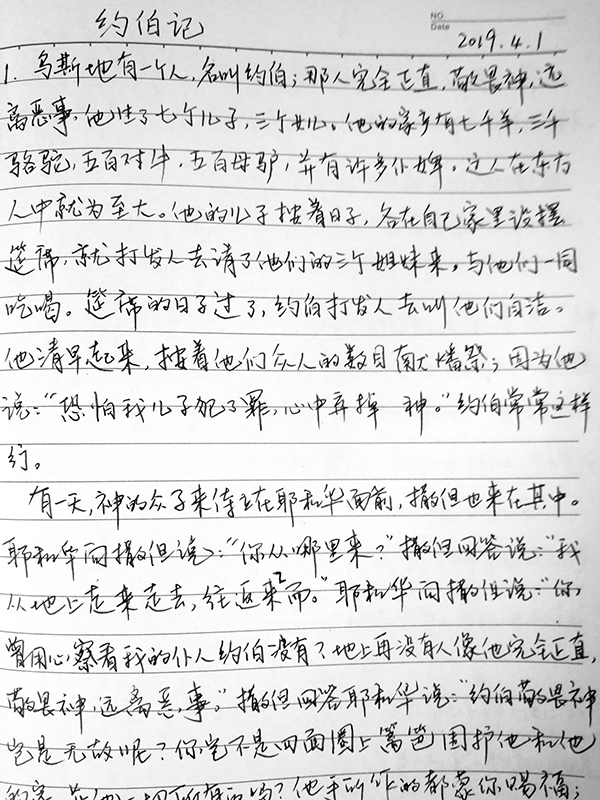 约伯记
NO.
Date 2019.4.1
1. 乌斯地有一个人，名叫约伯；那人完全正直，敬畏神，远
离恶事。他生了七个儿子，三个女儿。他的家产有七千羊，三千
骆驼，五百对牛，五百母驴，并有许多仆婢。这人在东方
人中就为至大。他的儿子按着日子，各在自己家里设摆
筵席，就打发人去请了他们的三个姐妹来，与他们一同
吃喝。筵席的日子过了，约伯打发人去叫他们自洁。
他清早起来，按着他们众人的数目献燔祭；因为他
说：“恐怕我儿子犯了罪，心中弃掉 神。”约伯常常这样
行。
有一天，神的众子来侍立在耶和华面前，撒但也来在其中。
耶和华问撒但说：“你从哪里来？”撒但回答说：“我
从地上走来走去，往返而来。”耶和华问撒但说：“你
曾用心察看我的仆人约伯没有？地上再没有人像他完全正直，
敬畏神，远离恶事。”撒但回答耶和华说：“约伯敬畏神
岂是无故呢？你岂不是四面圈上篱笆围护他和他
的家，并他一切所有的吗？他手所作的都蒙你赐福；